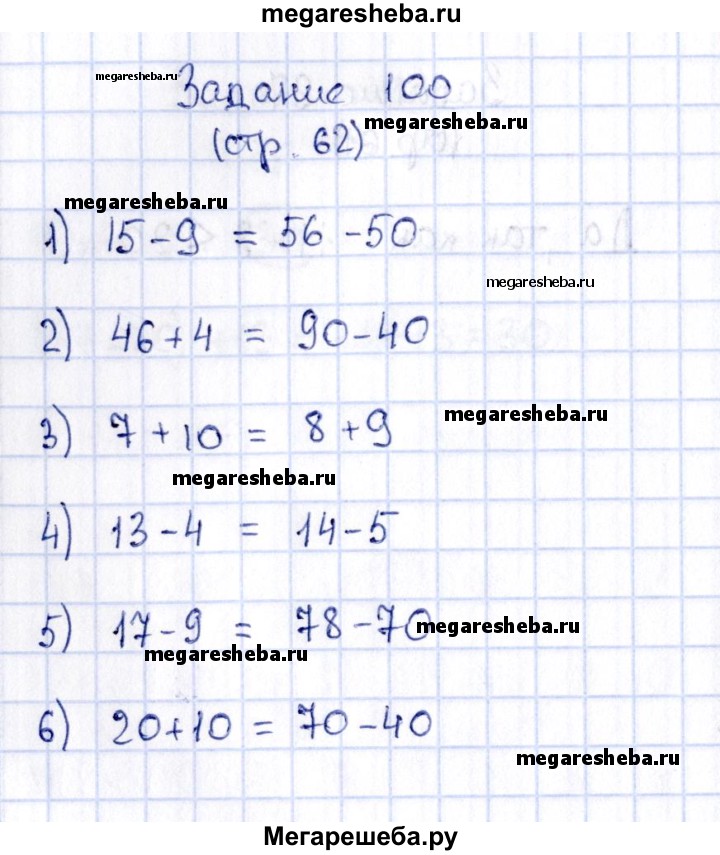 megaresheba.ru
megaresheba.ru
Задание 100
megaresheba.ru
(стр. 62)
megaresheba.ru
1) 15-9 = 56-50
megaresheba.ru
2) 46+4 = 90-40
megaresheba.ru
3) 7+10 = 8+9
megaresheba.ru
4) 13-4 = 14-5
5) 17-9 = 78-70
megaresheba.ru
megaresheba.ru
6) 20+10 = 70-40
megaresheba.ru
Мегарешеба.ру